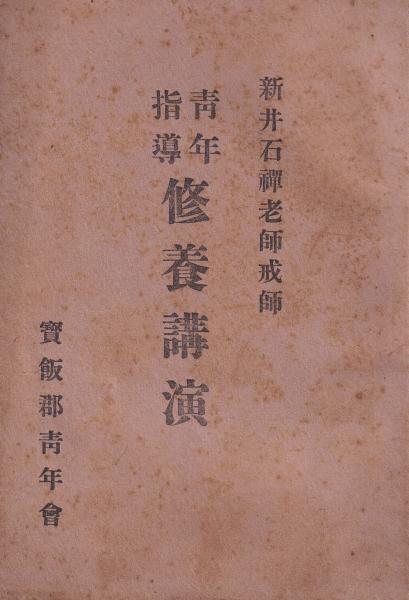 新井石禪老師戒師
靑年指導 修養講演
寶飯郡靑年會